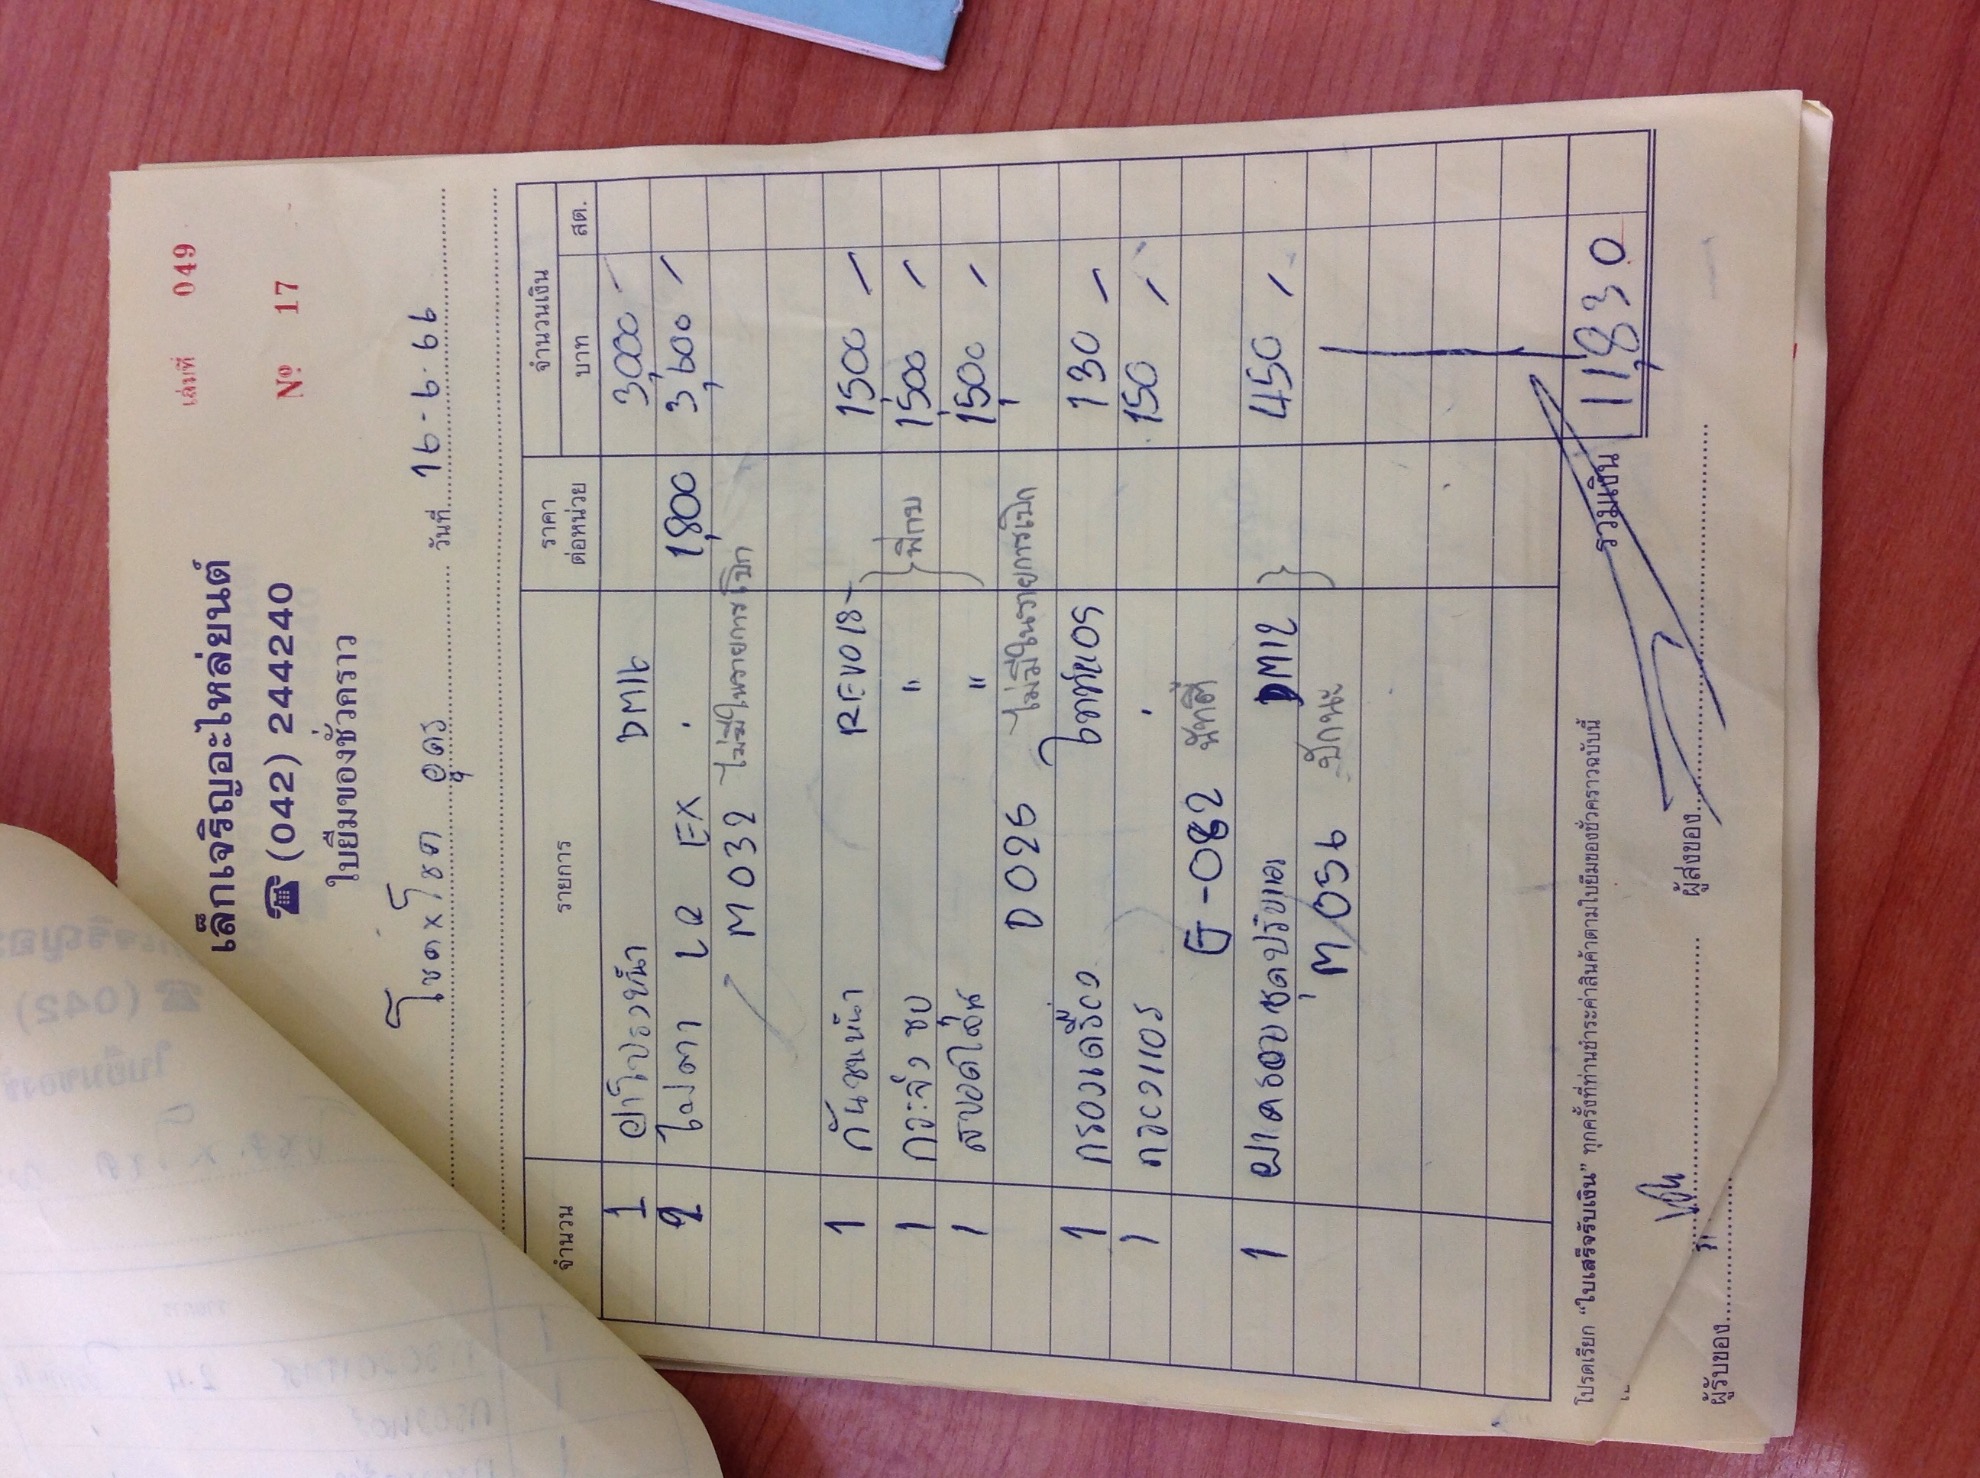 เล่มที่ 049
เล็กเจริญอะไหล่ยนต์
☎ (042) 244240
Nº 17
ใบยืมของชั่วคราว
โชค x โชค อุดร วันที่ 16-6-66
จำนวน รายการ ราคาต่อหน่วย จำนวนเงิน
บาท สต.
1 ฝากระโปรงหน้า DM16 3,000 -
2 ไฟตา LR EX 1,800 3,600 -
M 032 ไม่มีในรายการเบิก
1 กันชนหน้า REVO 18- 1500 -
1 กระจัง ชบ " } พี่กบ 1,500 -
1 " 1,500 -
D 025 ไม่มีในรายการเบิก
1 กรองเครื่อง ไททัน05 130 -
1 150 -
G-082
1 ฝาครอบชุดปรับเบรค DM12 } 450 -
M 056
รวมเงิน 11,830
โปรดเรียก "ใบเสร็จรับเงิน" ทุกครั้งที่ท่านชำระค่าสินค้าตามใบยืมของชั่วคราวฉบับนี้
ผู้รับของ ผู้ส่งของ